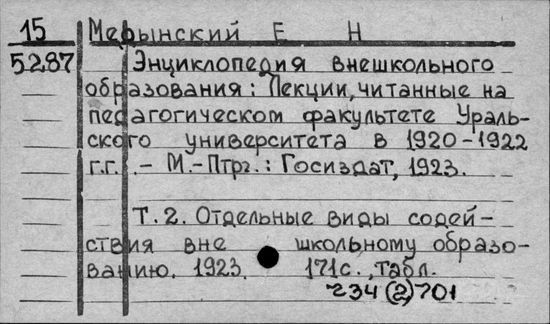 15 Мерынский Е Н
5287 Энциклопедия внешкольного
образования: Лекции, читанные на
педагогическом факультете Ураль-
ского университета в 1920-1922
г.г. .- М.-Птрг.: Госиздат, 1923.
Т.2. Отдельные виды содей-
ствия вне школьному образо-
ванию. 1923. 171с., табл.
234(2)701